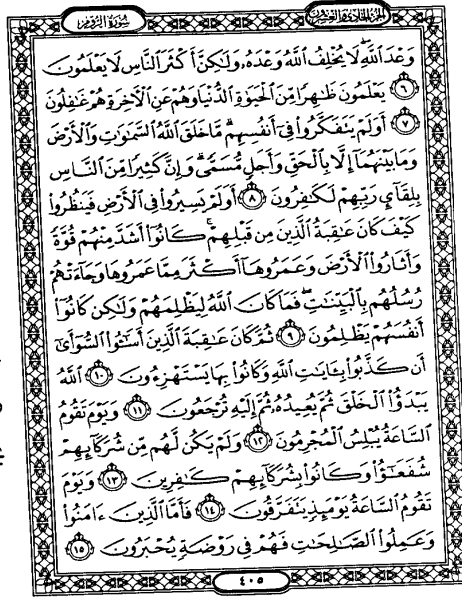 سُورَةُ الرُّومِ
الجُزْءُ الحَادِي وَالعِشْرُونَ
وَعْدَ ٱللَّهِ ۖ لَا يُخْلِفُ ٱللَّهُ وَعْدَهُۥ وَلَٰكِنَّ أَكْثَرَ ٱلنَّاسِ لَا يَعْلَمُونَ
٦ يَعْلَمُونَ ظَٰهِرًا مِّنَ ٱلْحَيَوٰةِ ٱلدُّنْيَا وَهُمْ عَنِ ٱلْءَاخِرَةِ هُمْ غَٰفِلُونَ
٧ أَوَلَمْ يَتَفَكَّرُوا۟ فِىٓ أَنفُسِهِم ۗ مَّا خَلَقَ ٱللَّهُ ٱلسَّمَٰوَٰتِ وَٱلْأَرْضَ
وَمَا بَيْنَهُمَآ إِلَّا بِٱلْحَقِّ وَأَجَلٍ مُّسَمًّى ۗ وَإِنَّ كَثِيرًا مِّنَ ٱلنَّاسِ
بِلِقَآئِ رَبِّهِمْ لَكَٰفِرُونَ ٨ أَوَلَمْ يَسِيرُوا۟ فِى ٱلْأَرْضِ فَيَنظُرُوا۟
كَيْفَ كَانَ عَٰقِبَةُ ٱلَّذِينَ مِن قَبْلِهِمْ ۚ كَانُوٓا۟ أَشَدَّ مِنْهُمْ قُوَّةً
وَأَثَارُوا۟ ٱلْأَرْضَ وَعَمَرُوهَآ أَكْثَرَ مِمَّا عَمَرُوهَا وَجَآءَتْهُمْ
رُسُلُهُم بِٱلْبَيِّنَٰتِ ۖ فَمَا كَانَ ٱللَّهُ لِيَظْلِمَهُمْ وَلَٰكِن كَانُوٓا۟
أَنفُسَهُمْ يَظْلِمُونَ ٩ ثُمَّ كَانَ عَٰقِبَةَ ٱلَّذِينَ أَسَٰٓـُٔوا۟ ٱلسُّوٓأَىٰٓ
أَن كَذَّبُوا۟ بِـَٔايَٰتِ ٱللَّهِ وَكَانُوا۟ بِهَا يَسْتَهْزِءُونَ ١٠ ٱللَّهُ
يَبْدَؤُا۟ ٱلْخَلْقَ ثُمَّ يُعِيدُهُۥ ثُمَّ إِلَيْهِ تُرْجَعُونَ ١١ وَيَوْمَ تَقُومُ
ٱلسَّاعَةُ يُبْلِسُ ٱلْمُجْرِمُونَ ١٢ وَلَمْ يَكُن لَّهُم مِّن شُرَكَآئِهِمْ
شُفَعَٰٓؤُا۟ وَكَانُوا۟ بِشُرَكَآئِهِمْ كَٰفِرِينَ ١٣ وَيَوْمَ
تَقُومُ ٱلسَّاعَةُ يَوْمَئِذٍ يَتَفَرَّقُونَ ١٤ فَأَمَّا ٱلَّذِينَ ءَامَنُوا۟
وَعَمِلُوا۟ ٱلصَّٰلِحَٰتِ فَهُمْ فِى رَوْضَةٍ يُحْبَرُونَ ١٥
٤٠٥